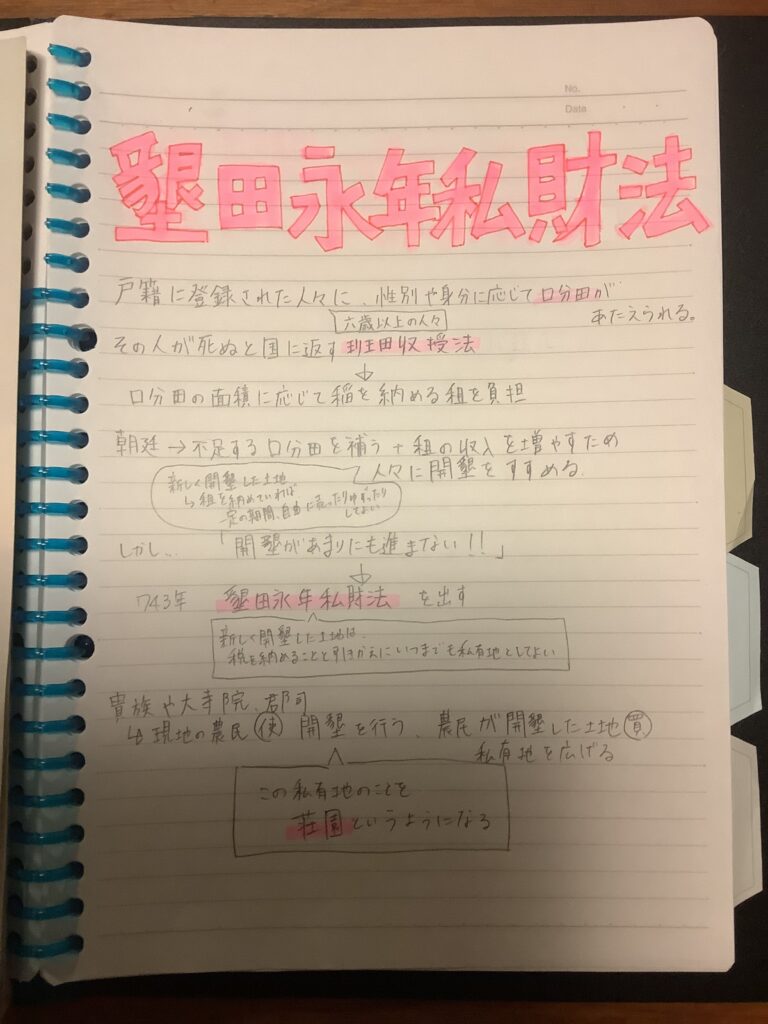 No.
Date
墾田永年私財法
戸籍に登録された人々に、性別や身分に応じて口分田が
あたえられる。
六歳以上の人々
その人が死ぬと国に返す班田収授法
↓
口分田の面積に応じて稲を納める租を負担
朝廷→不足する口分田を補う+租の収入を増やすため
人々に開墾をすすめる.
新しく開墾した土地
↳租を納めていれば
一定の期間、自由に売ったりゆずったり
してよい
しかし…「開墾があまりにも進まない!!」
↓
743年 墾田永年私財法 を出す
新しく開墾した土地は、
税を納めることと引きかえにいつまでも私有地としてよい
貴族や大寺院、郡司
↳現地の農民使 開墾を行う、農民が開墾した土地買
私有地を広げる
この私有地のことを
荘園というようになる